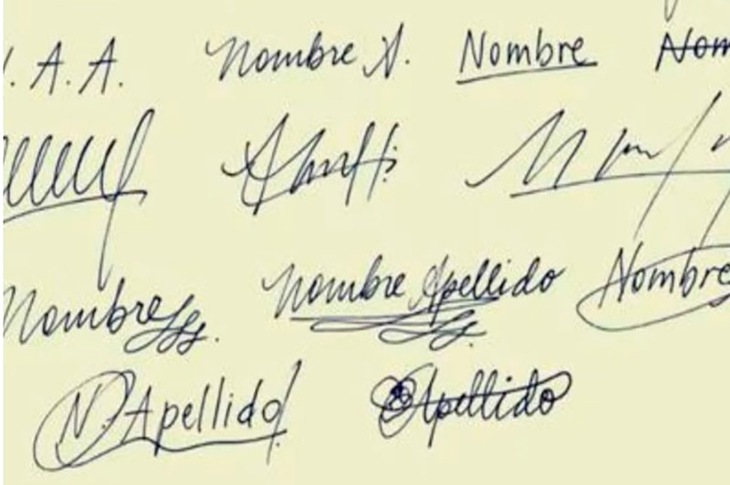 . A. A. Nombre A. Nombre Nom
Nombre Nombre Apellido Nombre
N. Apellido Apellido